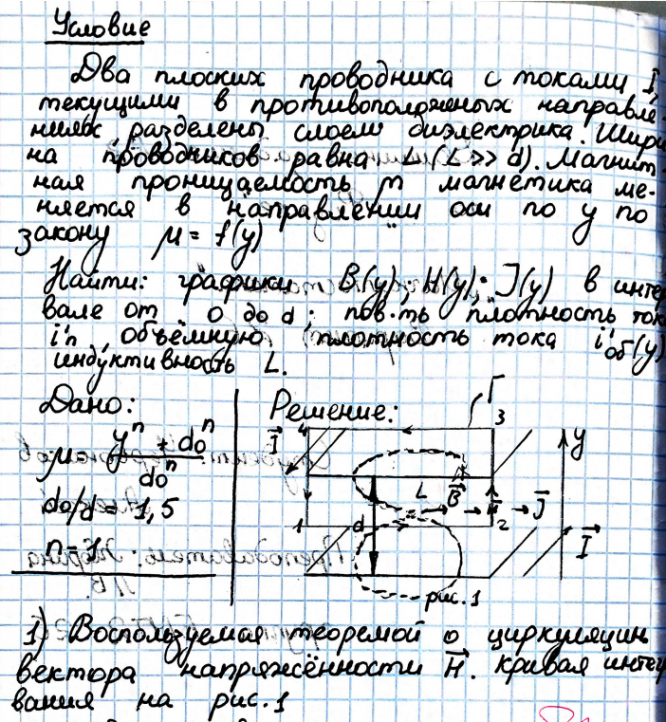 Условие
Два плоских проводника с токами I,
текущими в противоположеных направле-
ниях разделены слоем диэлектрика. Шири
на проводников равна L (L >> d). Магнит-
ная проницаемость μ магнетика ме-
няется в направлении оси по y по
закону μ = f(y)
Найти: графики B(y); H(y); J(y) в инте
вале от 0 до d; пов-ть плотность ток
i'п, объёмную плотность тока i'об(y)
индуктивность L.
Дано:
μ = (y^n + d₀^n) / d₀^n
d₀/d = 1,5
n = 1
Решение:
Г
4
3
I
y
L
B
H
J
1
2
d
I
рис. 1
1) Воспользуемся теоремой о циркуляции
вектора напряжённости H. кривая интег
вания на рис. 1